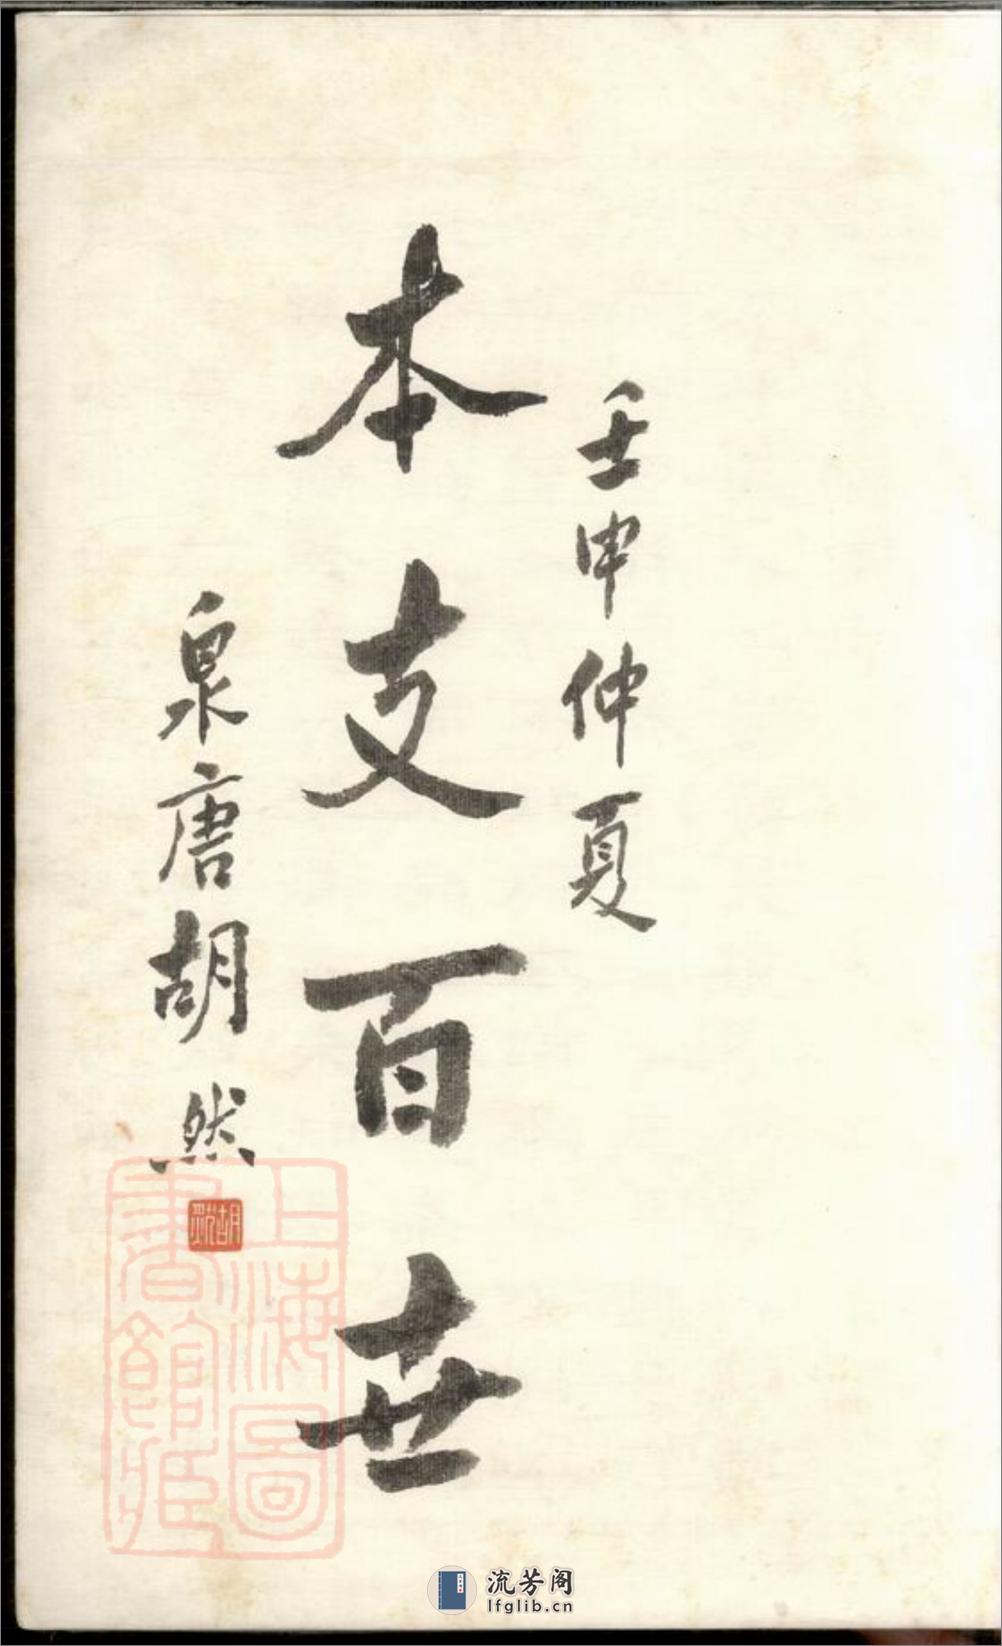 壬申仲夏
本支百世
泉唐胡然
胡然
上海圖
書館藏
流芳阁
lfglib.cn